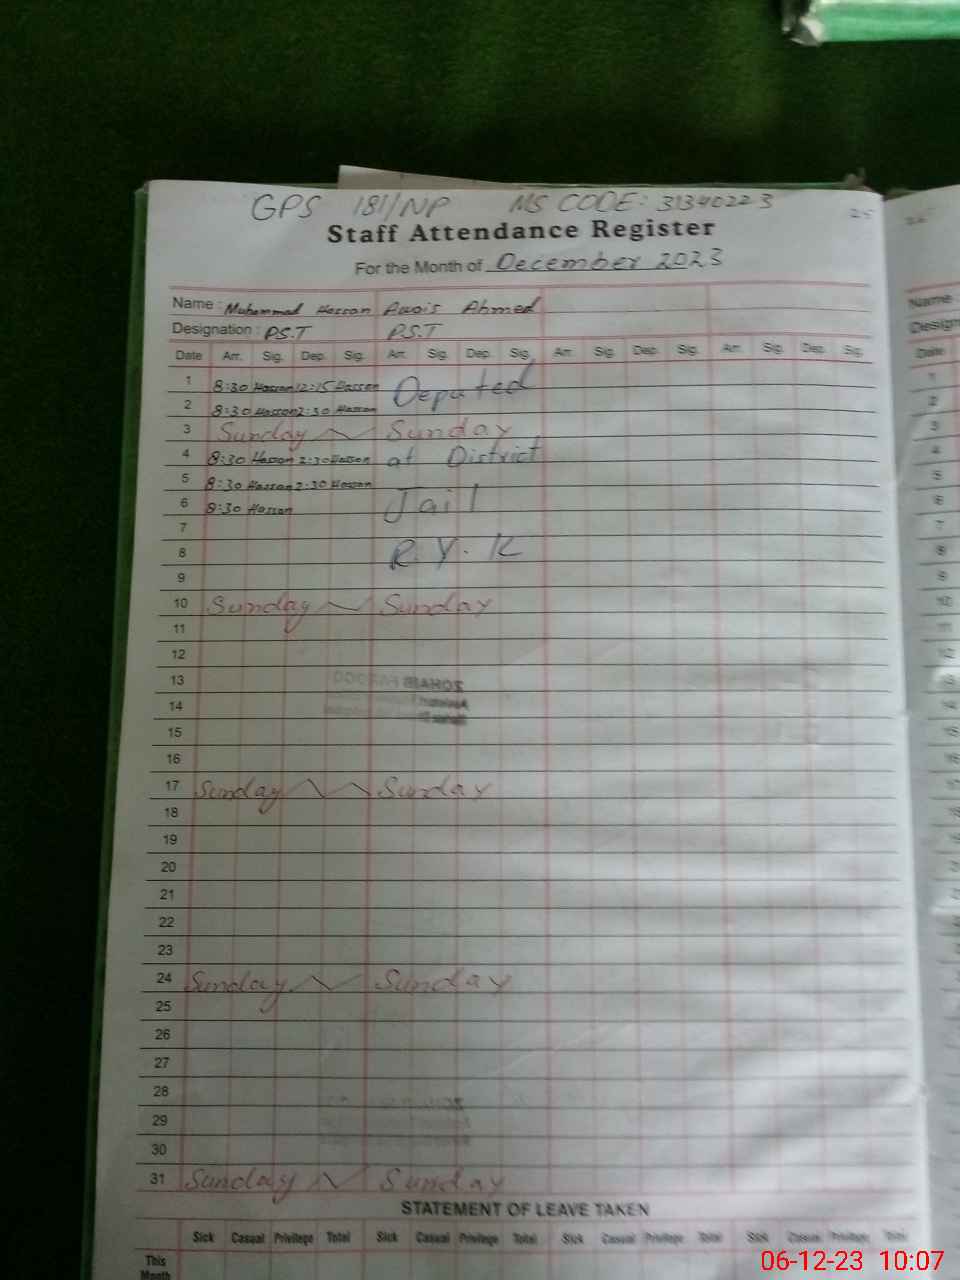 GPS 181/NP MS CODE: 31340223
25
Staff Attendance Register
For the Month of December 2023
Name : Muhammad Hassan Awais Ahmed
Designation : P.S.T P.S.T
Date Arr. Sig. Dep. Sig. Arr. Sig. Dep. Sig. Arr. Sig. Dep. Sig. Arr. Sig. Dep. Sig.
1 8:30 Hassan 12:15 Hassan Deputed
2 8:30 Hassan 2:30 Hassan
3 Sunday Sunday
4 8:30 Hassan 2:30 Hassan at District
5 8:30 Hassan 2:30 Hassan
6 8:30 Hassan Jail
7
8 R.Y.K
9
10 Sunday Sunday
11
12
13
14
15
16
17 Sunday Sunday
18
19
20
21
22
23
24 Sunday Sunday
25
26
27
28
29
30
31 Sunday Sunday
STATEMENT OF LEAVE TAKEN
Sick Casual Privilege Total Sick Casual Privilege Total Sick Casual Privilege Total Sick Casual Privilege Total
This
Month
06-12-23 10:07